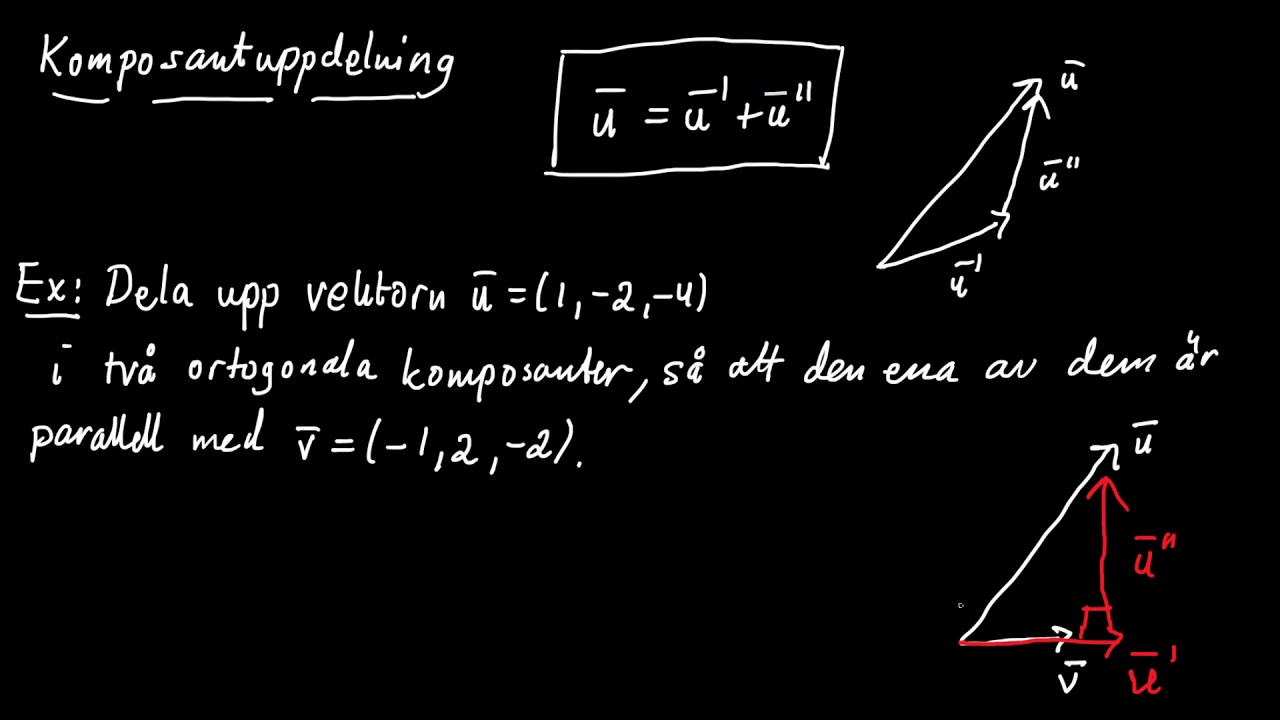 Komposantuppdelning
ū = ū' + ū''
ū
ū''
ū'
Ex: Dela upp vektorn ū = (1, -2, -4)
i två ortogonala komposanter, så att den ena av dem är
parallell med v̄ = (-1, 2, -2).
ū
ū''
v̄
ū'